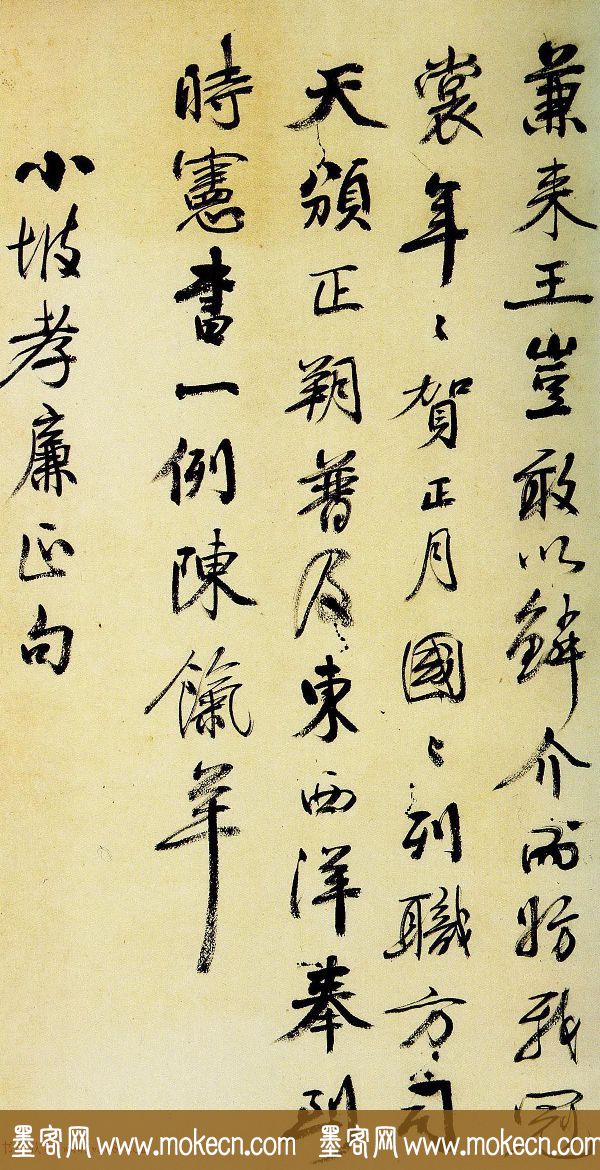 兼来王豈敢以鱗介而妨我冠
裳年〻賀正月國〻列職方司
天頒正朔普及東西洋奉到
時憲書一例陳餼羊
小坡孝廉正句
墨客网 www.mokecn.com 墨客网 www.mokecn.com